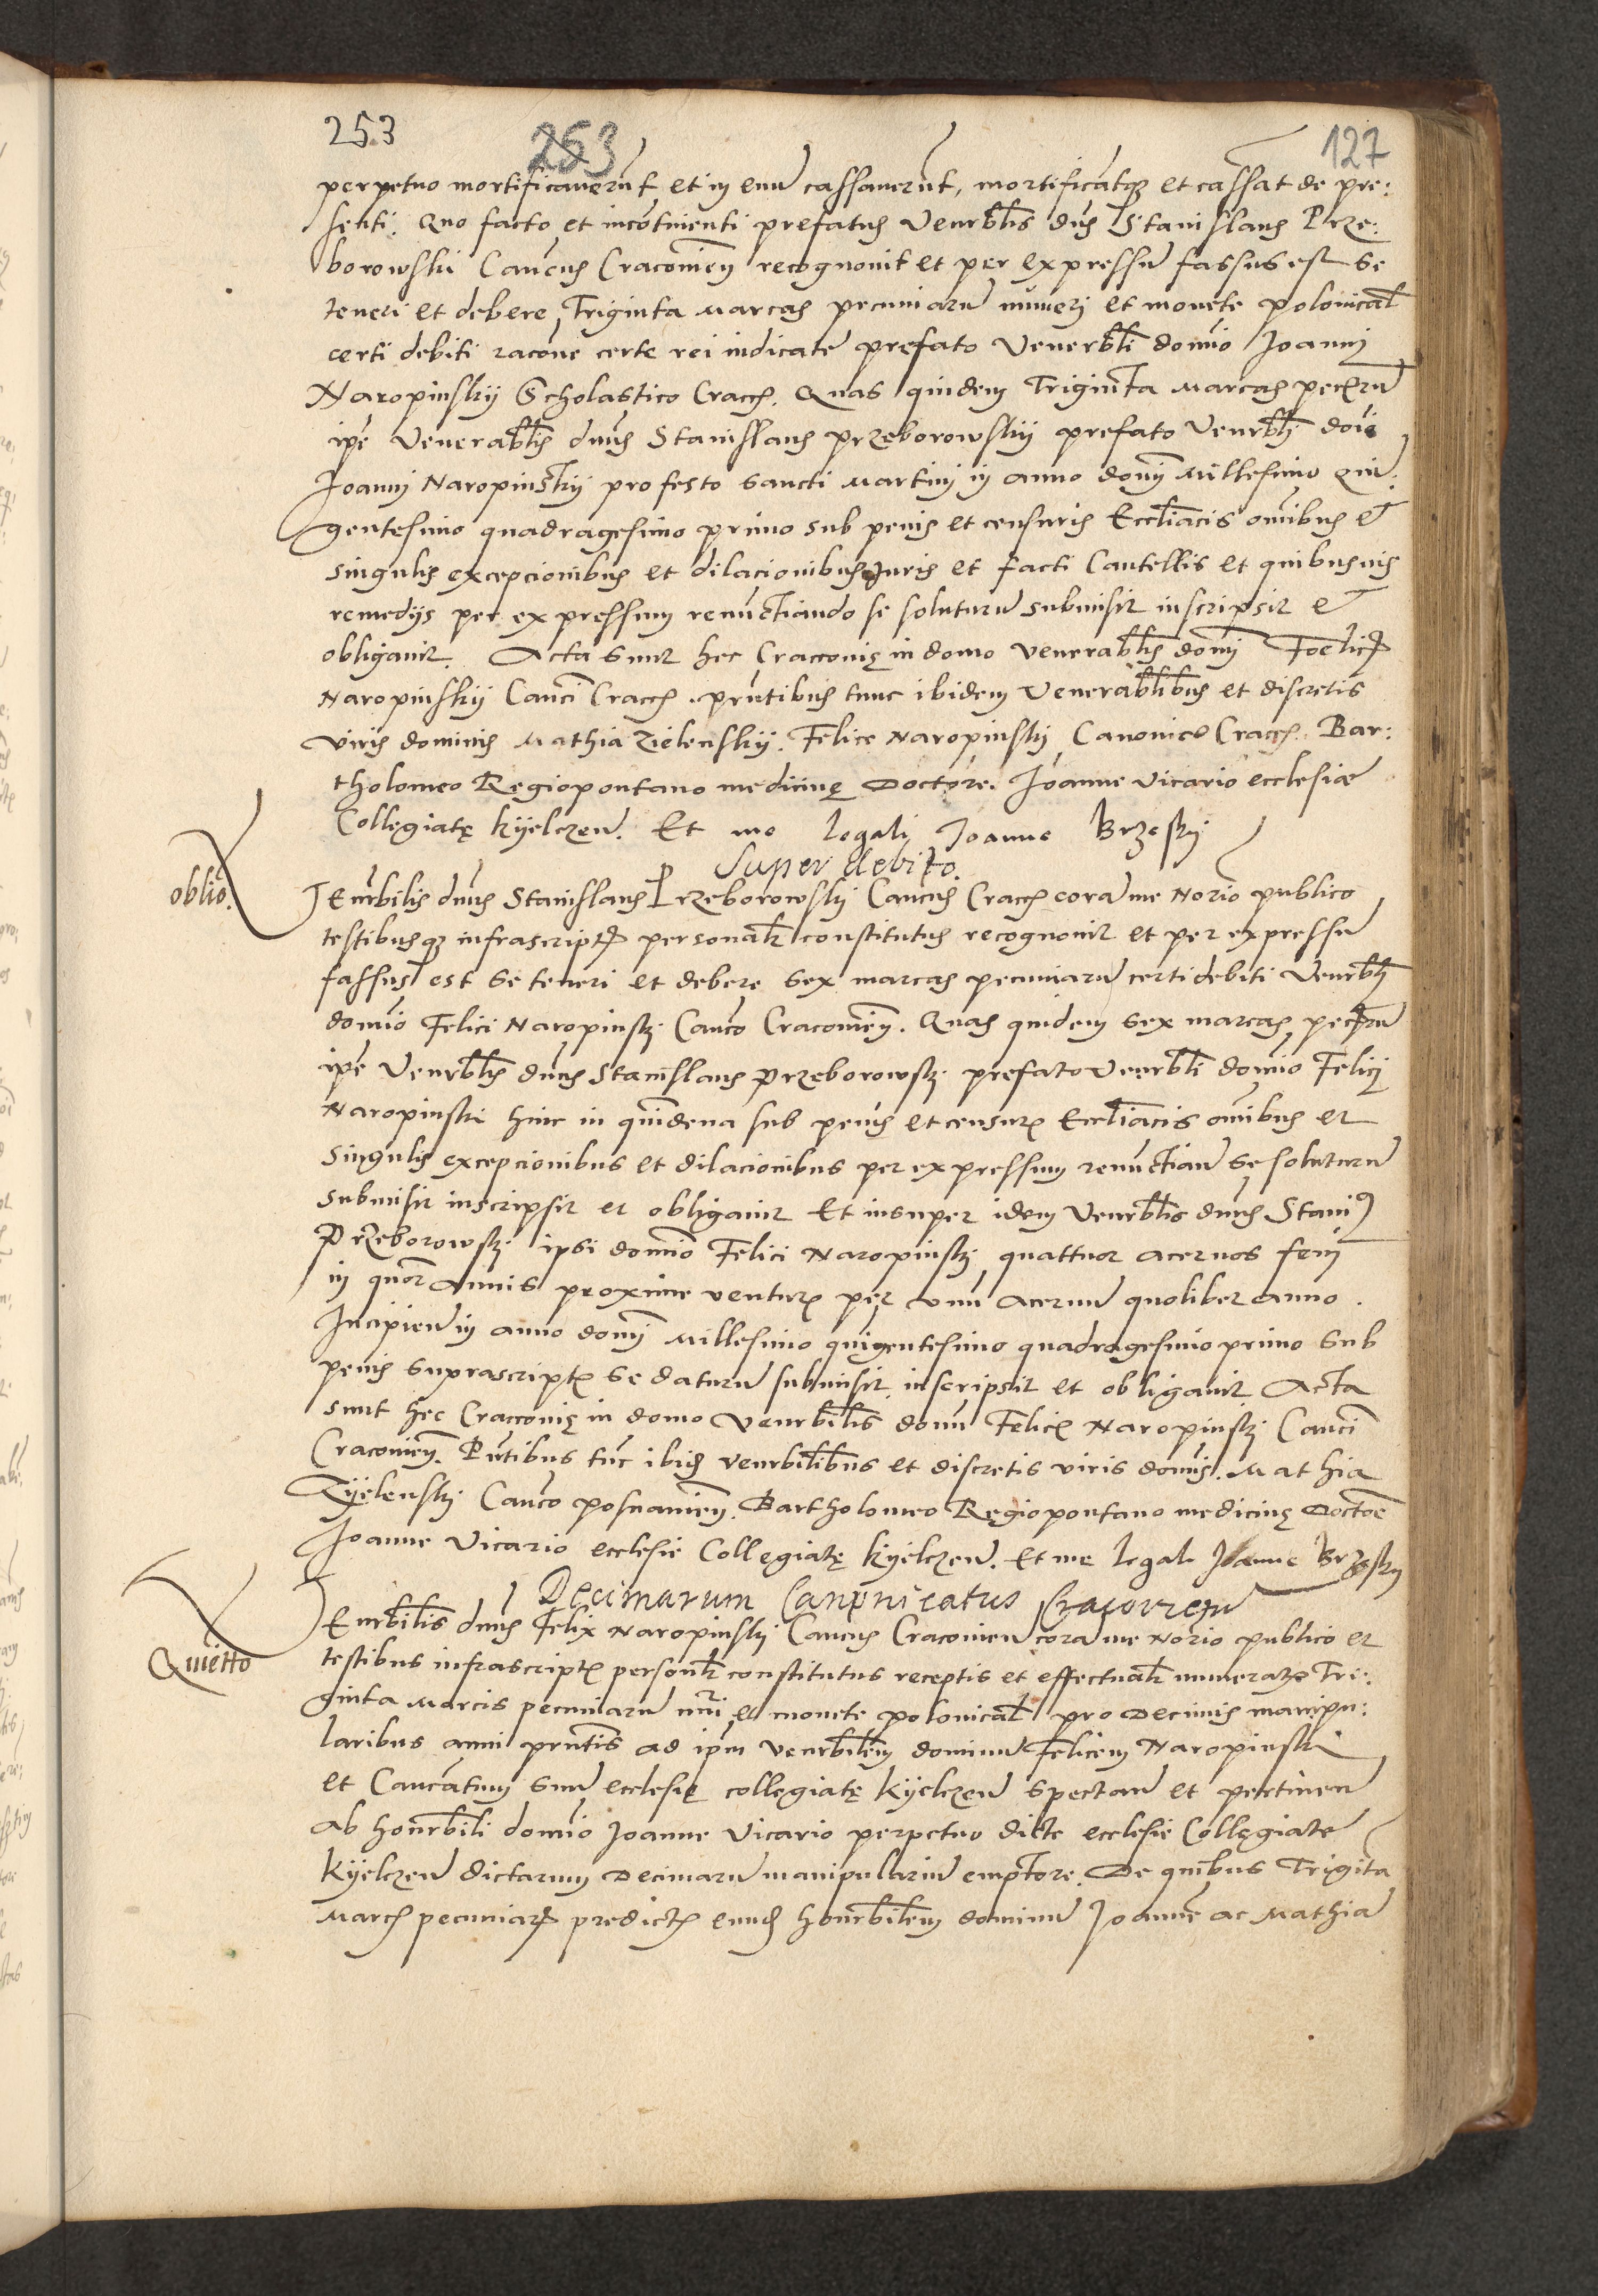 253 253 127
perpetuo mortificauerunt et in euu cassauerunt, mortificatqȝ et cassat de pre:
senti. Quo facto et incontinenti prefatus Venrblis dns Stanislaus Prze:
borowski Cancus Cracoien recognouit et per expressu fassus est se
teneri et debere Triginta Marcas pecuniaru numeri et monete polonical
certi debiti racone certe rei iudicate prefato Venerbli domio Joanni
Naropinskij Scholastico Cracon. Quas quidem Triginta Marcas pecuniaru
ipe Venerablis dnus Stanislaus przeborowskij prefato Venrbli doio
Joanni Naropinskij pro festo Sancti Martini in anno domi Millesimo Quin:
gentesimo quadragesimo primo sub penis et censuris Eccliacis omibus et
singulis excepcionibus et dilacionibus Juris et facti Cautellis et quibusuis
remedijs per expressum renuctiando se soluturu submisit inscripsit et
obligauit. Acta sunt hec Cracconię in domo venerablis domi Foelicis
Naropinskij Canci Cracon. prntibus tunc ibidem Venerablibus et discretis
viris dominis Mathia Zielenskij. Felice Naropinskj Canonico Cracon. Bar:
tholomeo Regiopontano medicinę Doctore. Joanne vicario ecclesiæ
Collegiatę kyelczen. Et me legali Joanne Brzeskj
Super debito.
oblio.
Venrbilis dnus Stanislaus Przeborowskj Cancus Cracon cora me Norio publico
testibusqȝ infrascriptis personalr constitutus recognouit et per expressu
fassus est se teneri et debere sex marcas pecuniaru certi debiti Venrbli
domio Felici Naropinskj Canco Cracoien. Quas quidem sex marcas pecuniaru
ipe Venrblis dnus Stanislaus przeborowskj prefato Venrbli domio Felici
Naropinski hinc in quidena sub penis et censuris Eccliacis omibus et
singulis excepcionibus et dilacionibus per expressum renuctian se soluturu
submisit inscripsit et obligauit Et insuper idem Venrblis dnus Stanis
Przeborowskj ipsi domio Felici Naropinskj quattuor aceruos feni
in quor annis proxime venturis per vnu aceruu quolibet anno.
Incipien in anno domi Millesimo quigentesimo quadragesimo primo sub
penis suprascriptis se daturu submisit inscripsit et obligauit Acta
sunt hec Cracconię in domo Venrbilis domi Felicis Naropinskj Canci
Cracoien. Pntibus tuc ibid venrbilibus et discretis viris domis. Mathia
Zyelenskj Canco posnanien. Bartholomeo Regiopontano medicinę Doctore
Joanne Vicario ecclesie Collegiatę kyelczen. Et me legali Joanne Brzeskj
Decimarum Canonicatus
Quietto
Venrbilis dnus Felix Naropinskj Cancus Cracoien cora me Norio publico et
testibus infrascriptis personlr constitutus receptis et effectualr numeratis Tri:
ginta Marcis pecuniaru nuri et monete polonical pro Decimis manipu:
laribus anni prntis ad ipm Venrbilem dominu Felicem Naropinski
et Cancatum suu ecclesię collegiatę kyelczen spectan et pertinen
ab honrbili domio Joanne Vicario perpetuo dicte ecclesie Collegiate
kyelczen dictarum Decimaru manipulariu emptore. De quibus Trigita
Marcis pecuniaru predictis eund honrbilem dominu Joanne ac Mathia